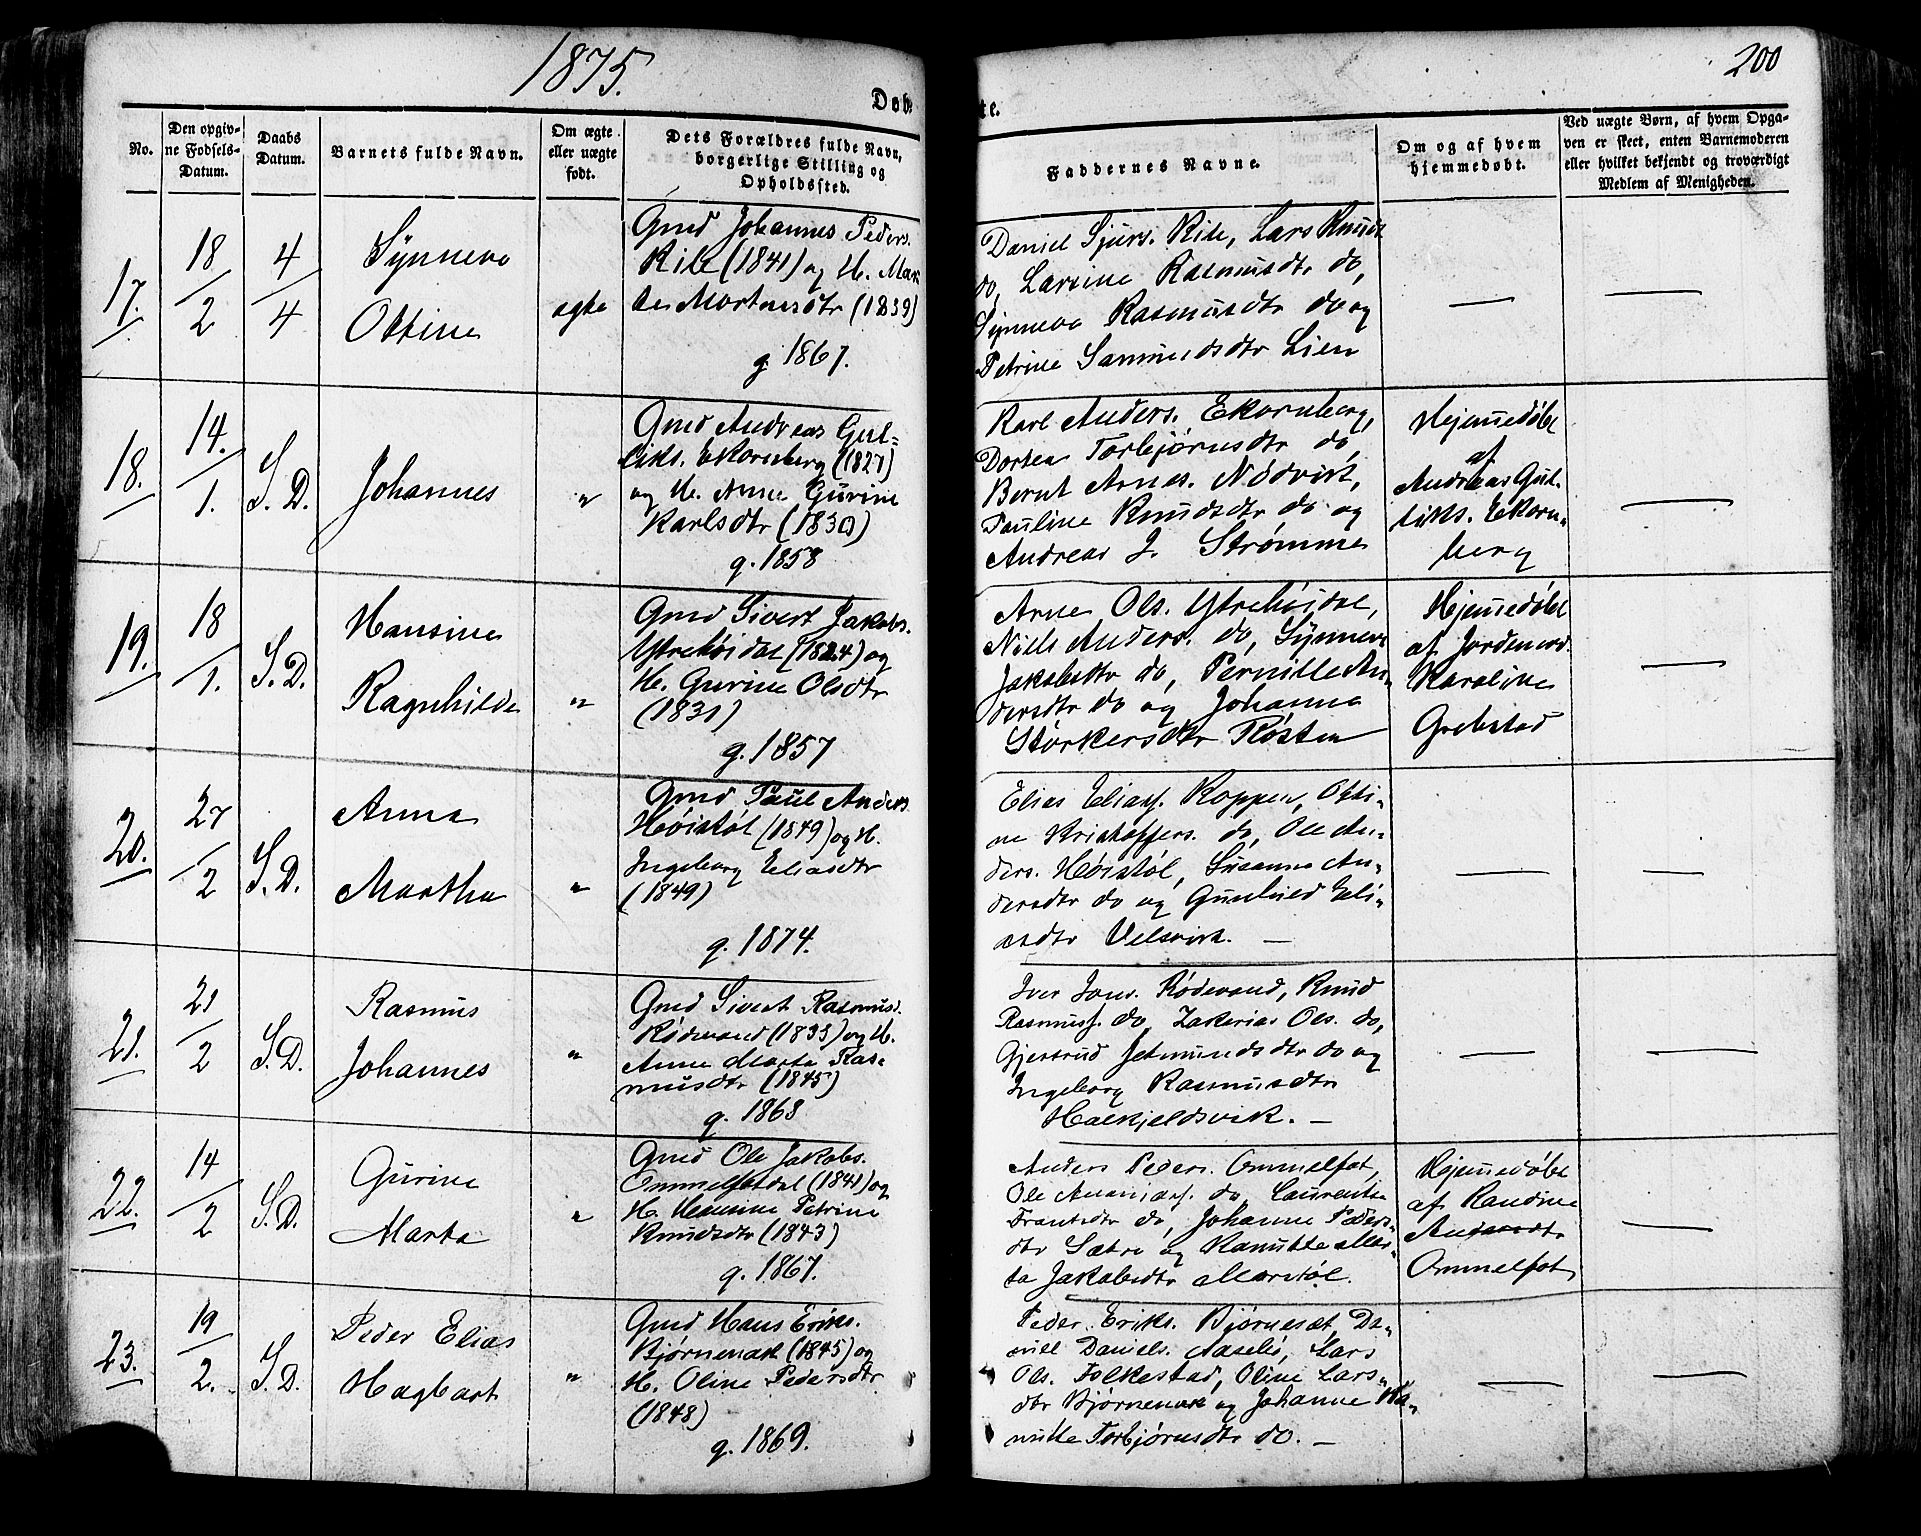 1875.
200
Døb
te.
No.
Den opgiv-
ne Fødsels-
Datum.
Daabs
Datum.
Barnets fulde Navn.
Om ægte
eller uægte
født.
Dets Forældres fulde Navn,
borgerlige Stilling og
Opholdssted.
Faddernes Navne.
Om og af hvem
hjemmedøbt.
Ved uægte Børn, af hvem Opga-
ven er skeet, enten Barnemoderen
eller hvilket bekjendt og troværdigt
Medlem af Menigheden.
17.
18/2
4/4
Synneva
Oktine
ægte
Gmd Johannes Peders.
Rite (1841) og H. Mar
the Martensdtr (1839)
g. 1867.
Daniel Sjurs. Rite, Lars Knuds
do, Larsine Rasmusdtr do,
Synneva Rasmusdtr do og
Petrine Samundsdtr Lien
—
—
18.
14./1.
S. D.
Johannes
"
Gmd Andreas Gul-
liks. Ekornberg (1827)
og H. Anne Gurine
Karlsdtr (1830)
g. 1858
Karl Anders. Ekornberg,
Dorthea Torbjørnsdtr do,
Bernt Arnes. Nødvik,
Pauline Knudsdtr do og
Andreas J. Strømme
Hjemmedøbt
af
Andreas Gul-
liks. Ekorn-
berg
—
19.
18/1.
S. D.
Hansine
Ragnhilde
"
Gmd Sivert Jakobs.
Ytrehøidal (1824) og
H. Gurine Olsdtr
(1831)
g. 1857
Arne Ols. Ytrehøidal,
Nils Anders. do, Synneve
Jakobsdtr do, Pernille An-
dersdtr do og Johanne
Størkersdtr Røsten
Hjemmedøbt
af Jordemod.
Karoline
Grebstad
—
20.
27/2
S. D.
Anna
Martha
"
Gmd Paul Anders.
Høistøl (1849) og H.
Ingeborg Eliasdtr
(1849)
g. 1874.
Elias Eliass. Koppen, Otti-
ne Kristoffers. do, Ole An-
ders. Høistøl, Susanne An-
dersdtr do og Gunhild Eli-
asdtr Velsvik. —
—
—
21.
21/2
S. D.
Rasmus
Johannes
"
Gmd Sivert Rasmus.
Rødevand (1833) og H.
Anne Marta Ras-
musdtr (1845)
g. 1868
Iver Jons. Rødevand, Knud
Rasmuss. do, Zakarias Ols. do,
Gjertrud Jetmundsdtr do og
Ingeborg Rasmusdtr
Halkjeldsvik. —
—
—
22.
14/2
S. D.
Gurine
Marta
"
Gmd Ole Jakobs.
Ommelfotdal (1841) og
H. Petrine
Knudsdtr (1843)
g. 1867.
Anders Peders. Ommelfot,
Ole Ananiass. do, Laurentse
Frantsdtr do, Johanne Peders-
dtr Sætre og Ranutte Mar-
ta Jakobsdtr Marstøl.
Hjemmedøbt
af Randine
Andersdtr
Ommelfot
—
23.
19/2.
S. D.
Peder Elias
Hagbart
"
Gmd Hans Eriks.
Bjørnenak (1845) og
H. Oline Pedersdtr
(1848)
g. 1869.
Peder Eriks. Bjørneset, Da-
niel Daniels. Aasebø, Lars
Ols. Folkestad, Oline Lars-
dtr Bjørnenak og Johanne Ra-
nutte Torbjørnsdtr do. —
—
—